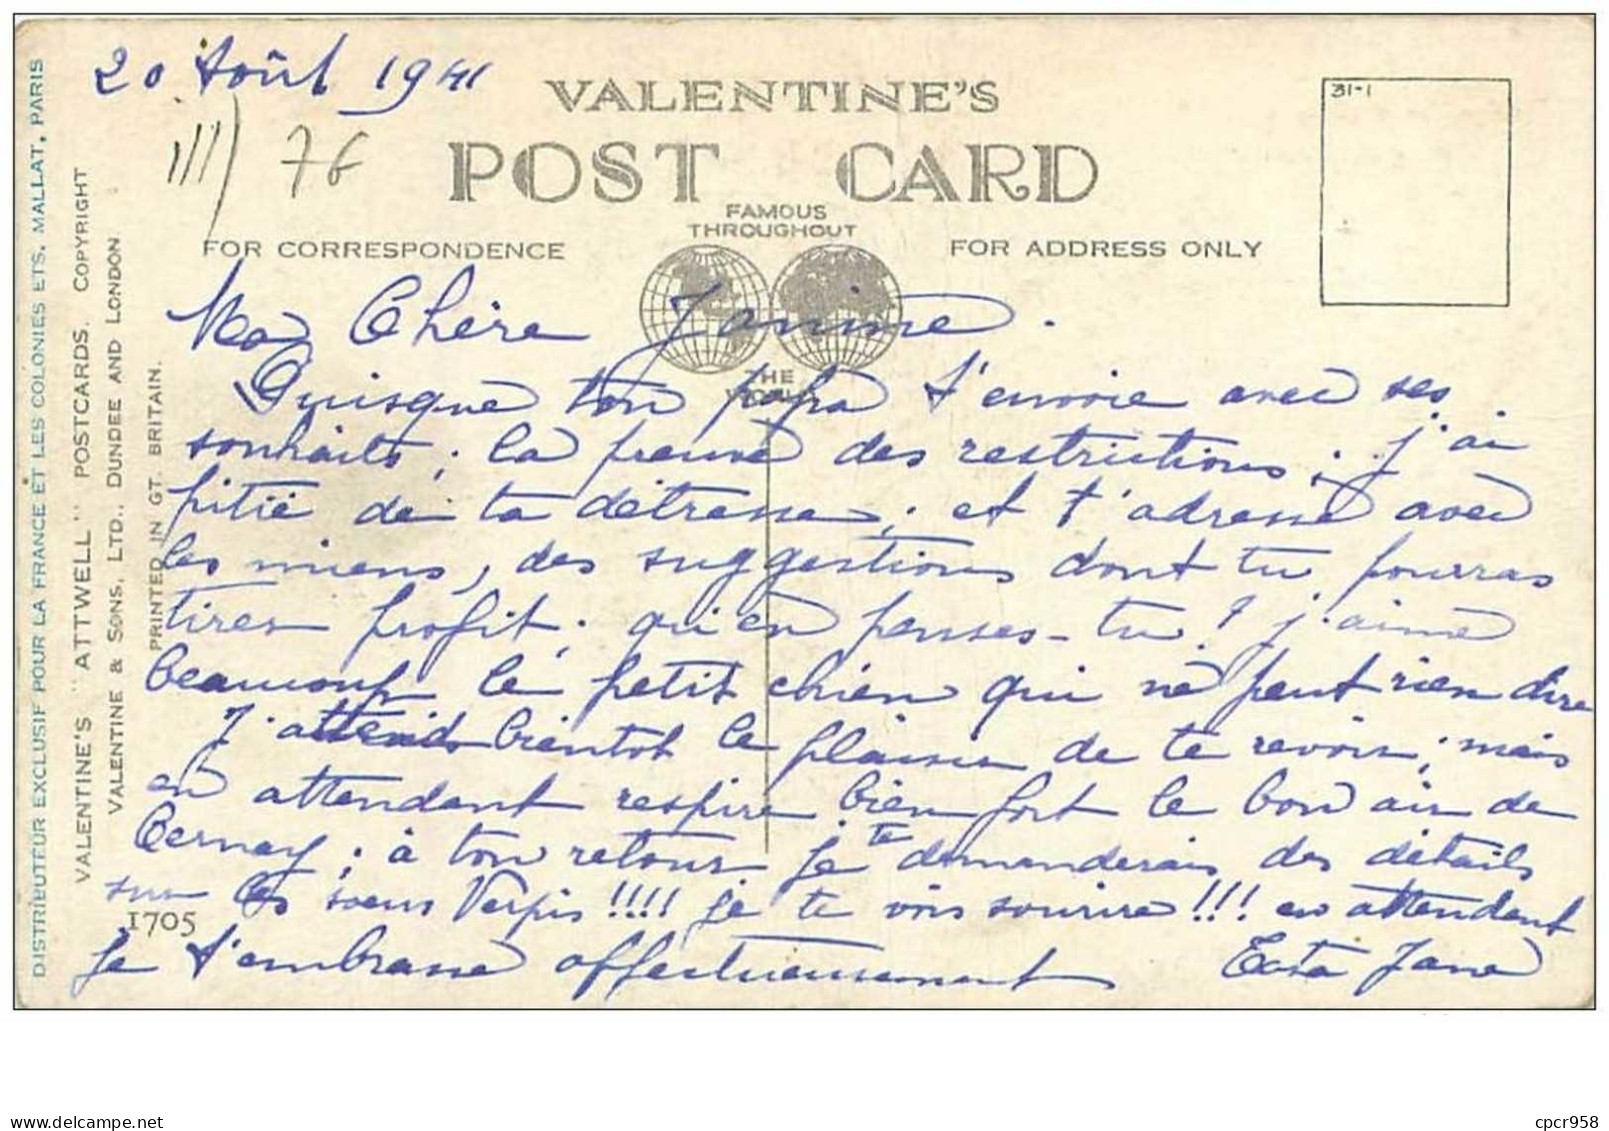 20 Août 1941
VALENTINE'S
POST CARD
FAMOUS
THROUGHOUT
THE
WORLD
FOR CORRESPONDENCE
FOR ADDRESS ONLY
31-1
76
Ma Chère Janine.
Puisque ton papa t'envoie avec ses
souhaits, la preuve des restrictions; j'ai
pitié de ta détresse, et t'adresse avec
les miens, des suggestions dont tu pourras
tirer profit. qu'en penses-tu? j'aime
beaucoup le petit chien qui ne peut rien dire
J'attends bientot le plaisir de te revoir; mais
en attendant respire bien fort le bon air de
Cernay; à ton retour je te demanderais des détails
sur les soeurs !!!! je te vois sourire!!! en attendant
je t'embrasse affectueusement
1705
DISTRIBUTEUR EXCLUSIF POUR LA FRANCE ET LES COLONIES ETS. MALLAT, PARIS
VALENTINE'S "ATTWELL" POSTCARDS. COPYRIGHT
VALENTINE & SONS, LTD., DUNDEE AND LONDON
PRINTED IN GT. BRITAIN.
delcampe.net
cpcr958